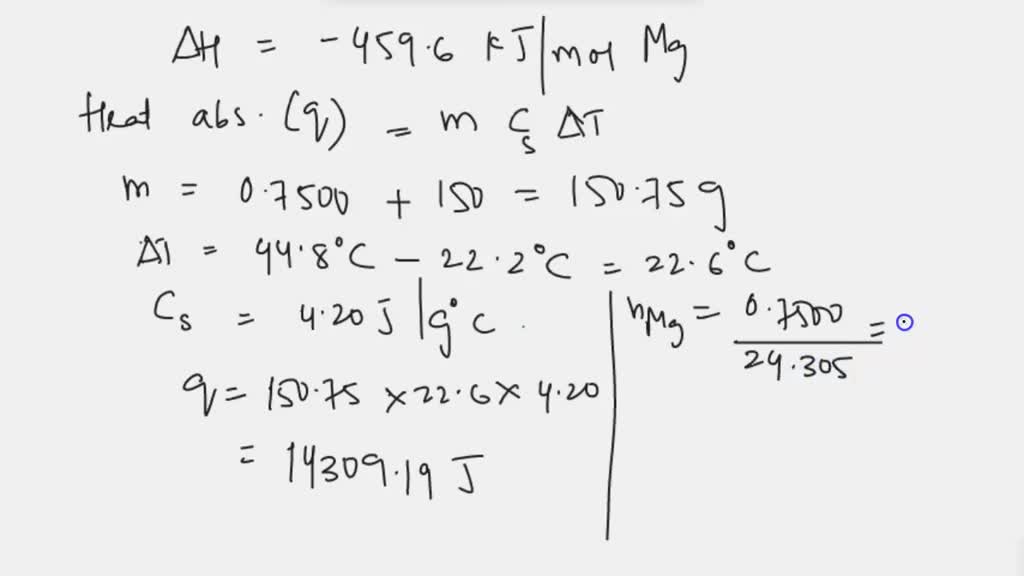 ΔH = -459.6 kJ/mol Mg
Heat abs. (q) = m Cs ΔT
m = 0.7500 + 150 = 150.75 g
ΔT = 44.8°C - 22.2°C = 22.6°C
Cs = 4.20 J/g°C
q = 150.75 × 22.6 × 4.20
= 14309.19 J
nMg = 0.7500 / 24.305 = 0